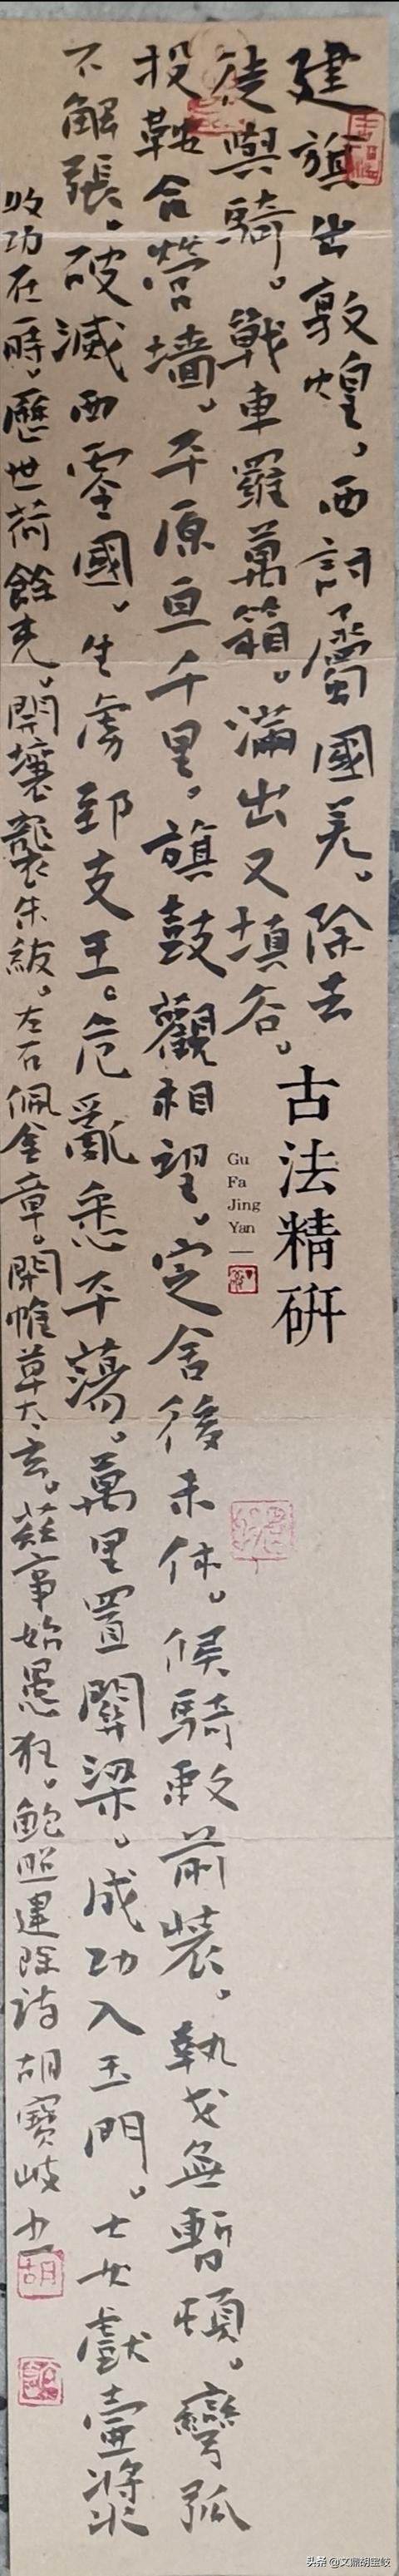 建旗出敦煌。西討屬國羌。除去
徒與騎。戰車羅萬箱。滿出又填谷。
投鞍合營墻。平原亘千里。旗鼓觀相望。定舍後未休。候騎敕前裝。執戈無暫頓。彎弧
不解張。破滅西零國。生虜郅支王。危亂悉平蕩。萬里置關梁。成功入玉門。士女獻壺漿
收功在一時。歷世荷餘光。開壤襲朱紱。左右佩金章。開帷草太玄。茲事始愚狂。鮑照建除詩 胡寶岐書
胡
古法精研
Gu
Fa
Jing
Yan
头条 @文鼎胡宝岐